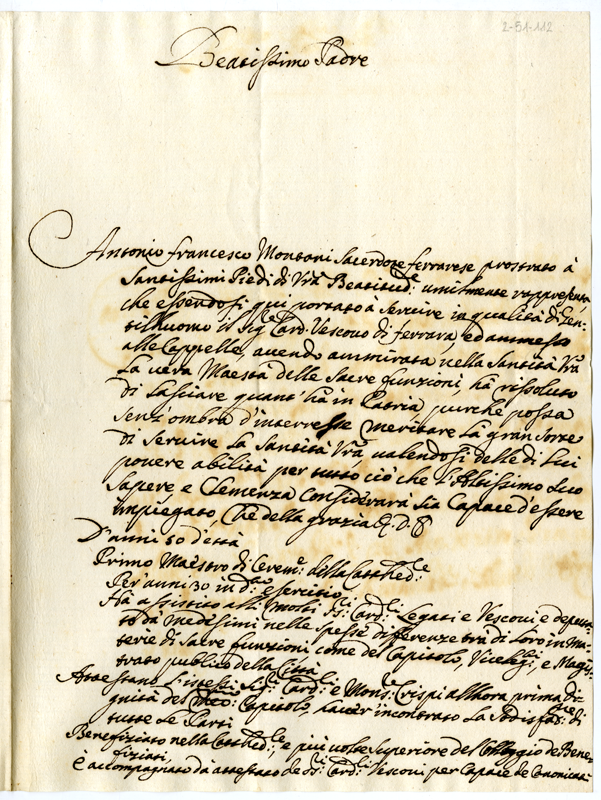 2-51-112
Beatissimo Padre
Antonio Francesco Montani Sacerdote ferrarese prostrato à
Santissimi Piedi di Vrã Beatitud:e umilmente rappresenta
che essendosi qui portato à servire in qualità di Gen-
tilhuomo il Sig:re Card: Vescovo di ferrara, ed ammesso
alle Cappelle, avendo ammirata nella Santità Vrã
La vera Maestà delle Sacre funzioni, hà rissoluto
di Lasciare quant'hà in Patria, purche possa
senz'ombra d'interresse meritare La gran Sorte
di Servire La Santità Vrã, valendosi delle di Lui
povere abilità per tutto ciò che l'Altissimo Suo
Sapere e Clemenza Considerarà sia Capace d'essere
impiegato, Che della grazia
D'anni 50 d'età
Primo Maestro di Cerem:e della Catthed:le
Per anni 30 in d:o essercitio
Hà assistito alli Molti Card:li Legati e Vescovi e deputa-
to dà medesimi nelle spesse differenze trà di Loro in Ma-
terie di Sacre funzioni come del Capitolo, Viceleg:i, e Magis-
trato publico della Città
Attestano L'istessi Sig:ri Card:li e Mons:r Crispi allhora prima Di-
gnità del Capitolo, haver incontrato La Sodisfat:ne di
tutte Le Parti
Benefiziato nella Catthed:le, e più volte Superiore del Collegio de Bene-
fiziati,
È accompagnato dà attestato de Card:li Vescovi per Capace de Canonicati